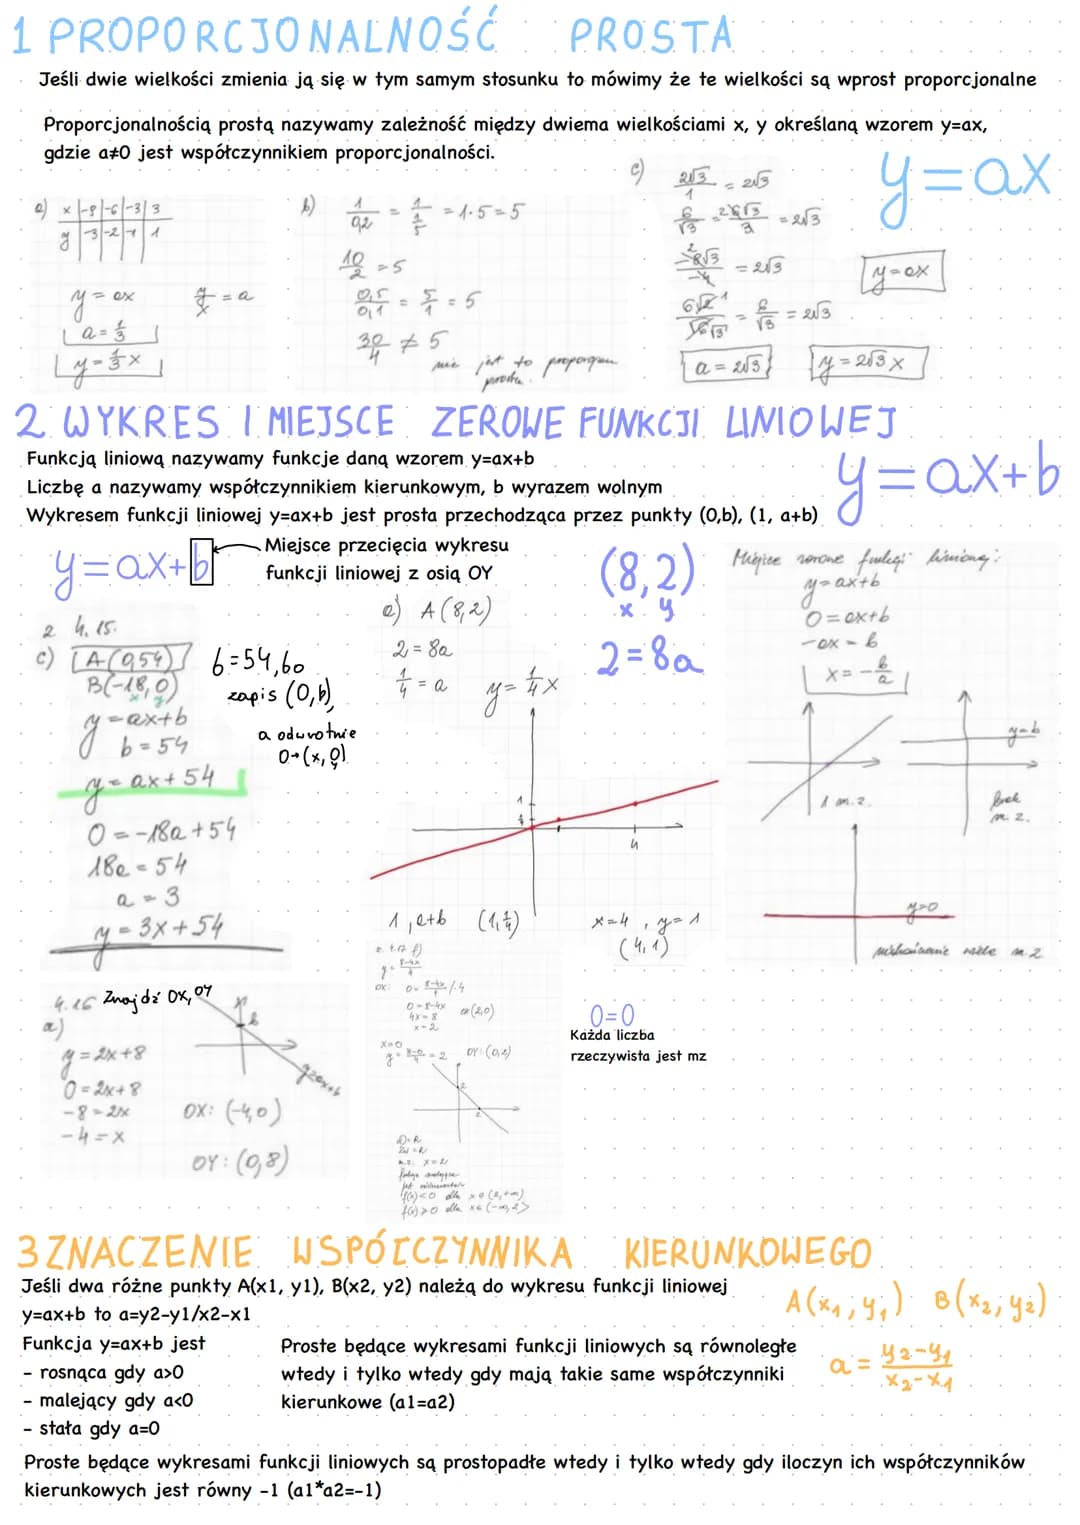 1 PROPORCJONALNOŚĆ PROSTA
Jeśli dwie wielkości zmienia ją się w tym samym stosunku to mówimy że te wielkości są wprost proporcjonalne
Proporcjonalnością prostą nazywamy zależność między dwiema wielkościami x, y określaną wzorem y=ax,
gdzie a≠0 jest współczynnikiem proporcjonalności.
y=ax
a) x | -9 | -6 | -3 | 3
y | -3 | -2 | -1 | 1
y=ax y/x = a
a = 1/3
y = 1/3 x
b) 1/0,2 = 1/(1/5) = 1·5 = 5
10/2 = 5
0,5/0,1 = 5/1 = 5
30/4 ≠ 5
nie jest to proporcjon
prosta.
c) 2√3/1 = 2√3
6/√3 = 6√3/3 = 2√3
-8√3/-4 = 2√3
= 6/√3 = 2√3
a = 2√3 y = 2√3 x
y=ax
2 WYKRES I MIEJSCE ZEROWE FUNKCJI LINIOWEJ
Funkcją liniową nazywamy funkcje daną wzorem y=ax+b
Liczbę a nazywamy współczynnikiem kierunkowym, b wyrazem wolnym
Wykresem funkcji liniowej y=ax+b jest prosta przechodząca przez punkty (0,b), (1, a+b)
y=ax+b
y=ax+b
Miejsce przecięcia wykresu
funkcji liniowej z osią OY
2 4.15.
c) A(0,54)
B(-18,0)
x y
y=ax+b
b=54
y=ax+54
0=-18a+54
18a=54
a=3
y=3x+54
b=54, bo
zapis (0,b),
a odwrotnie
0→(x,0)
e) A(8,2)
2=8a
1/4=a y=1/4 x
1
1/4
4
1, a+b (1, 1/4) x=4, y=1
(4,1)
(8,2)
x y
2=8a
Miejsce zerowe funkcji liniowej:
y=ax+b
0=ax+b
-ax=b
x=-b/a
1 m.z.
y=b
brak
m.z.
y=0
nieskończenie wiele m.z
4.16 Znajdź OX, OY
a)
y=2x+8
0=2x+8
-8=2x
-4=x
b
y=ax+b
OX: (-4,0)
OY: (0,8)
z. 4.17 f)
y= 8-4x/4
OX: 0= 8-4x/4 /·4
0=8-4x
4x=8
x=2
OX (2,0)
x=0
y= 8-0/4 = 2 OY: (0,2)
2
2
D=R
ZW=R
m.z: x=2
0=0
Każda liczba
rzeczywista jest mz
3 ZNACZENIE WSPÓŁCZYNNIKA KIERUNKOWEGO
Jeśli dwa różne punkty A(x1, y1), B(x2, y2) należą do wykresu funkcji liniowej
y=ax+b to a=y2-y1/x2-x1
A(x₁, y₁) B(x₂, y₂)
a = y₂-y₁/x₂-x₁
Funkcja y=ax+b jest
- rosnąca gdy a>0
- malejący gdy a<0
- stała gdy a=0
Proste będące wykresami funkcji liniowych są równoległe
wtedy i tylko wtedy gdy mają takie same współczynniki
kierunkowe (a1=a2)
Proste będące wykresami funkcji liniowych są prostopadłe wtedy i tylko wtedy gdy iloczyn ich współczynników
kierunkowych jest równy -1 (a1*a2=-1)